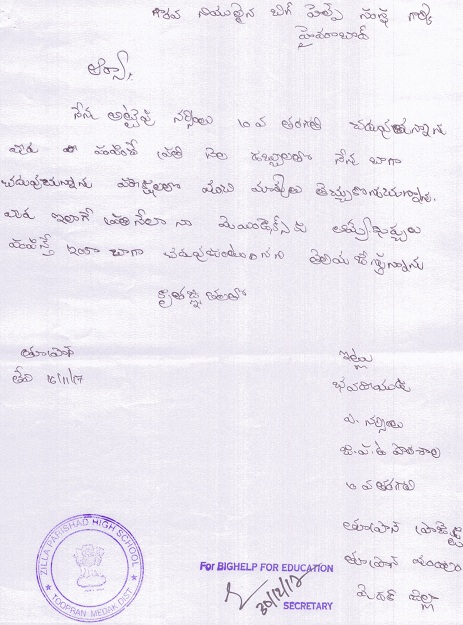 గౌరవ నియులైన బిగ్ హెల్ప్ సంస్థ గార్కి
హైదరాబాద్
ఆర్యా,
నేను అట్టైపు నర్సింలు 10 వ తరగతి చదువుతున్నాను
మీరు పంపించే ప్రతి నెల డబ్బులతో నేను బాగా
చదువుతున్నాను పరీక్షలలో మంచి మార్కులు తెచ్చుకొంటున్నాను.
మీరు ఇలాగే ప్రతినేలా నా
పంపిస్తే ఇంకా బాగా చదువుకుంటానని తెలియ జేస్తున్నాను
కృతజ్ఞతలతో
తూప్రాన్
తేది 16/11/17
ఇట్లు
ఎ. నర్సింలు
జి.ప.ఉ పాఠశాల
10 వ తరగతి
తూప్రాన్
తూప్రాన్ మండలం
మెదక్ జిల్లా
ZILLA PARISHAD HIGH SCHOOL
TOOPRAN MEDAK DIST
For BIGHELP FOR EDUCATION
20/12/17
SECRETARY